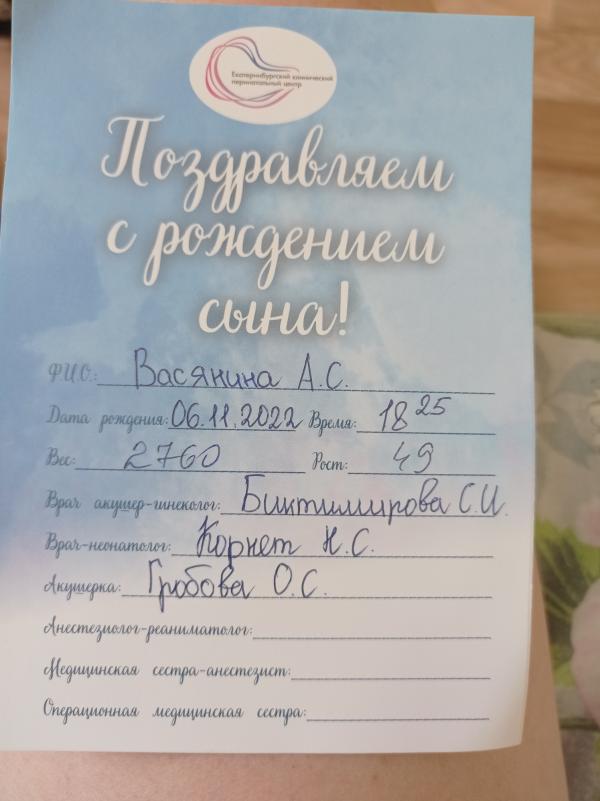 Екатеринбургский клинический
перинатальный центр
Поздравляем
с рождением
сына!
Ф.И.О.: Васянина А.С.
Дата рождения: 06.11.2022 Время: 18 25
Вес: 2760 Рост: 49
Врач акушер-гинеколог: Биктимирова С.И.
Врач-неонатолог: Корнет Н.С.
Акушерка: Гробова О.С.
Анестезиолог-реаниматолог:
Медицинская сестра-анестезист:
Операционная медицинская сестра: